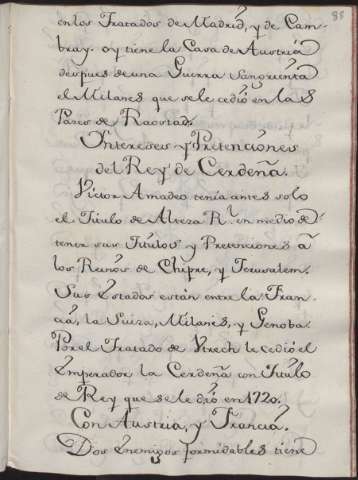 88
en los Tratados de Madrid, y de Cam-
bray. oy tiene la Casa de Austria
despues de una Guerra Sangrienta
el Milanes que se le cedió en las
Pazes de Raostad.
Intereses y Pretenciones
del Rey de Cerdeña.
Victor Amadeo tenia antes solo
el Titulo de Alteza R.l en medio de
tener sus Titulos y Pretenciones à
los Reinos de Chipre, y Jerusalem.
Sus Estados están entre la Fran-
cia, la Suiza, Milanes, y Genoba.
Por el Tratado de Vtrech le cedió el
Emperador la Cerdeña con Titulo
de Rey que se le dió en 1720.
Con Austria, y Francia.
Dos Enemigos formidables tiene